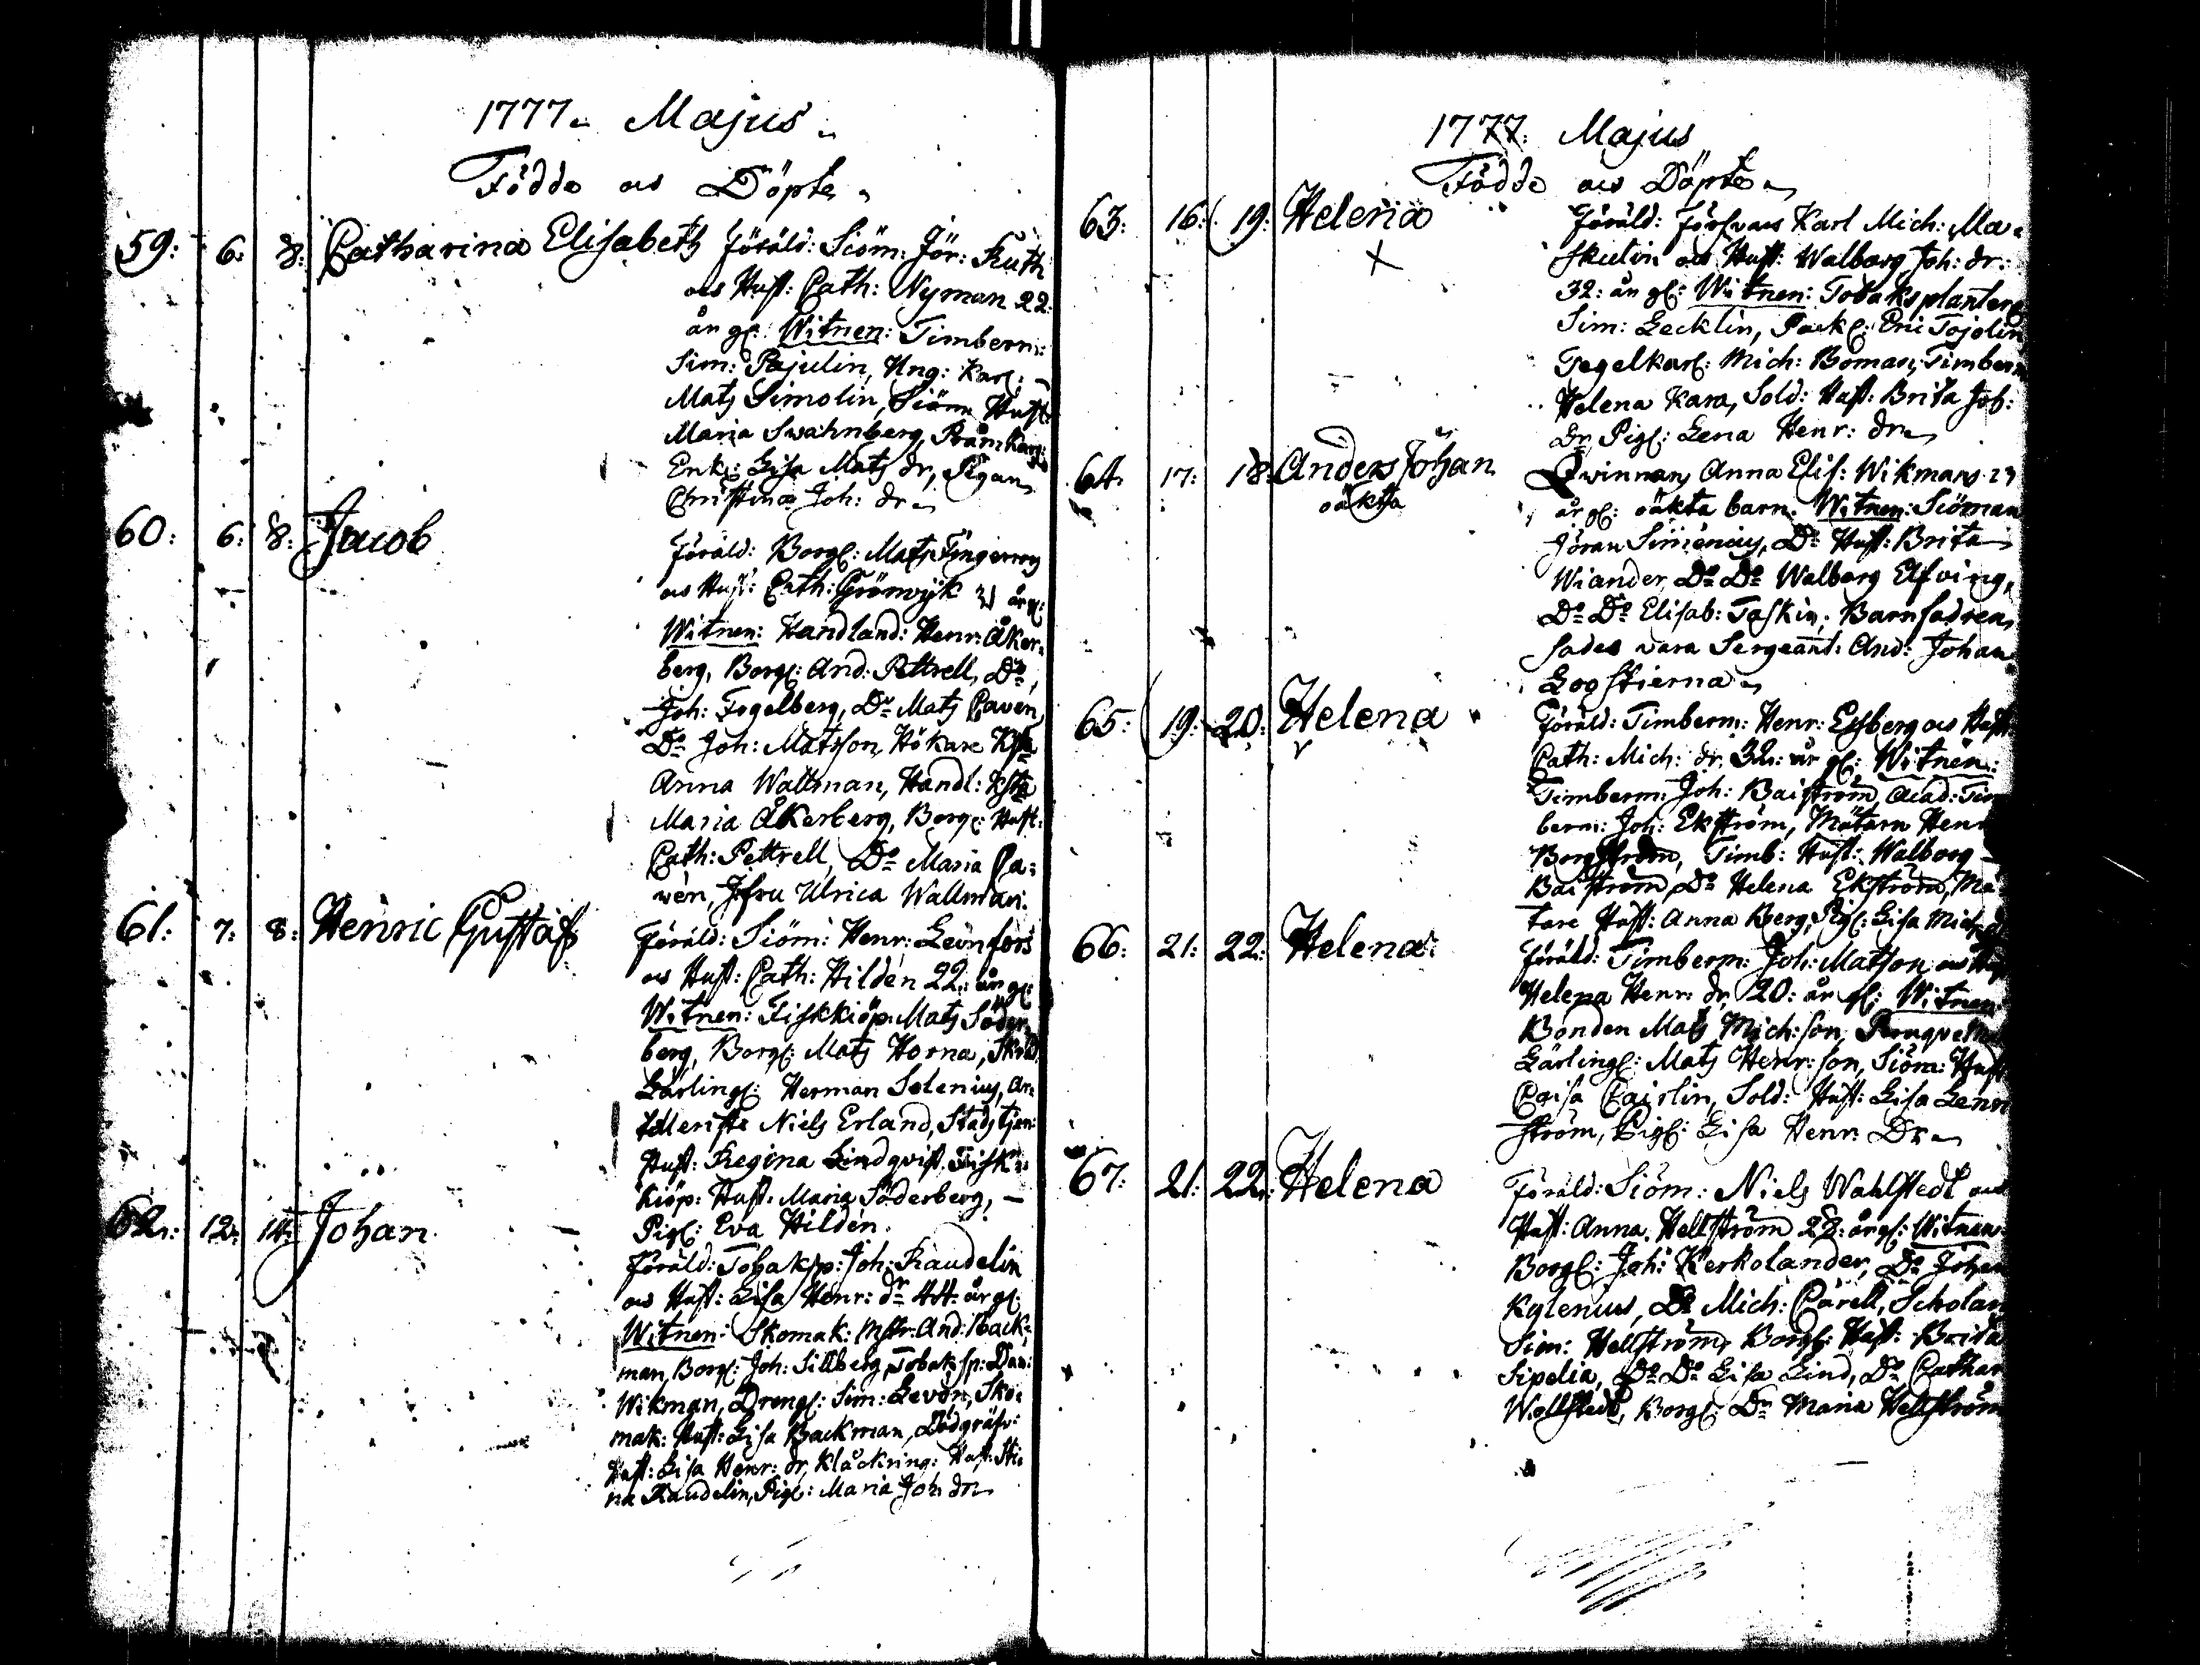 1777. Majus.
Födde och Döpte.
59: 6: 8: Catharina Elisabeth Föräld: Siöm: Jör: Ruth
och Hust: Cath: Nyman 22:
år gl: Witnen: Timberm:
Sim: Pajulin, Ung: Karl:
Mats Simolin, Siöm Hust:
Maria Swahnberg, Pråmkarl:
Enk: Lisa Mats dr, Pigan
Christina Joh: dr
60: 6: 8: Jacob
Föräld: Borg: Mats Fingerroy
och Hust: Cath: Grönwijk 31 år gl:
Witnen: Handland: Henr: Åker-
berg, Borg: And: Pettrell, Do,
Joh: Fogelberg, Do Mats Caven,
Do Joh: Matsson, Hökare
Anna Wallman, Handl:
Maria Åkerberg, Borg: Hust:
Cath: Pettrell, Do Maria Ca:
wén, Jfru Ulrica Wallman:
61: 7: 8: Henric Gustaf
Föräld: Siöm: Henr: Leonfors
och Hust: Cath: Hildén 22: år gl:
Witnen: Fiskkiöp: Mats Söder-
berg, Borg: Mats Horna,
Lärling: Herman Solenius, Ar-
tilleriste Niels Erland, Stadstjen:
Hust: Regina Lindqvist, Fisk:
kiöp: Hust: Maria Söderberg, –
Pig: Eva Hildén.
62: 12: 14: Johan
Föräld: Tobaksp: Joh: Raudelin
och Hust: Lisa Henr: dr 44: år gl:
Witnen: Skomak: Mstr: And: Back:
man, Borg: Joh: Sillberg, Tobaksp: Dan:
Wikman, Dreng: Sim: Levon, Sko:
mak: Hust: Lisa Backman, Dödgräfv:
Hust: Lisa Henr: dr, Klåckring: Hust: Sti:
na Raudelin, Pig: Maria Joh: dr
1777: Majus
Födde och Döpte
63: 16: 19: Helena
Föräld: Förswars Karl Mich: Ma:
skulin och Hust: Walborg Joh: dr:
32: år gl: Witnen: Tobaksplanter
Sim: Lecklin, Pack: Eric Tojolin
Tegelkarl: Mich: Boman, Timberm
Helena Kara, Sold: Hust: Brita Job:
Dr, Pig: Lena Henr: dr
64: 17: 18: Anders Johan
oäkta
Qwinnans Anna Elis: Wikmans 27
år gl: oäkta barn. Witnen: Siöman
Jöran Simenius, Do Hust: Brita
Wiander, Do Do Walborg Elfving,
Do Do Elisab: Taskin. Barnfadren
sades vara Sergeant: And: Johan
Logstierna
65: 19: 20: Helena
Föräld: Timberm: Henr: Esberg och Hust:
Cath: Mich: dr, 32: år gl: Witnen:
Timberm: Joh: Baiström, Acad: Tim
berm: Joh: Ekström, Mätarn Henr
Borgström, Timb: Hust: Walborg –
Baiström, Do Helena Ekström, Mä
tare Hust: Anna Berg, Pig: Lisa Mich: d
66: 21: 22: Helena
Föräld: Timberm: Joh: Matson och Hust
Helena Henr: dr, 20: år gl: Witnen:
Bonden Mats Mich:son,
Lärling: Mats Henr:son, Siöm: Hust
Caisa Cairlin, Sold: Hust: Lisa Lenn
ström, Pig: Lisa Henr: Dr
67: 21: 22: Helena
Föräld: Siöm: Niels Wahlstedt och
Hust: Anna Hellström 28: år gl: Witnen:
Borg: Joh: Kerkolander, Do Johan
Kylenius, Do Mich: Cärell, Scholar
Sim: Hellström, Borg: Hust: Brita
Sipelia, Do Do Lisa Lind, Do Cathar
Wallstedt, Borg: Dr Maria Hellström